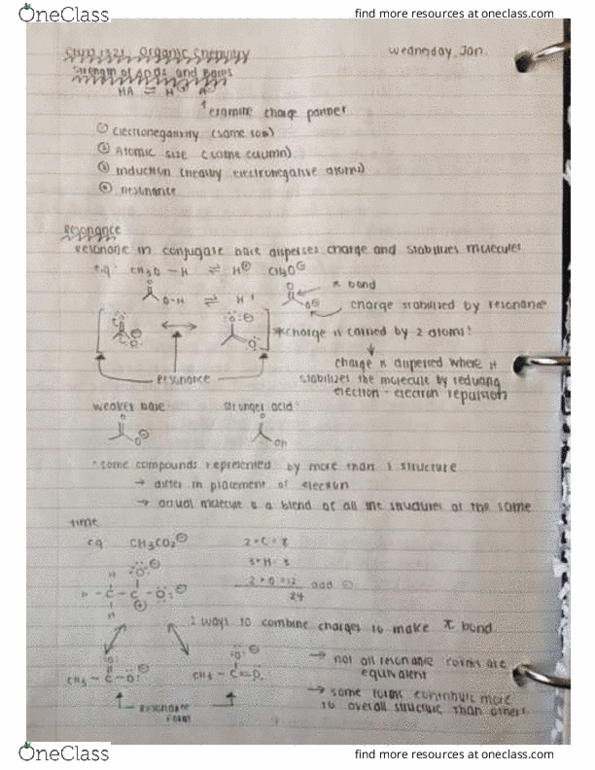 OneClass
find more resources at oneclass.com
Organic Chemistry
Wednesday, Jan.
Strength of Acids and Bases
HA ⇌ H⊕ A⊖
↑ examine charge partner
① Electronegativity (same row)
② Atomic size (same column)
③ Induction (nearby electronegative atoms)
④ Resonance
Resonance
Resonance in conjugate base disperses charge and stabilizes molecules
e.g. CH3O-H ⇌ H⊕ CH3O⊖
π bond
O-H ⇌ H+ O⊖
charge stabilized by resonance
*charge is carried by 2 atoms!
charge is dispersed where it
stabilizes the molecule by reducing
electron-electron repulsion
Resonance
weaker base stronger acid
O O⊖ O OH
some compounds represented by more than 1 structure
→ differ in placement of electron
→ actual molecule is a blend of all the structures at the same
time
eg CH3CO2⊖
2×C=8
3×H=3
2×O=12 add ⊖
24
2 ways to combine charges to make π bond
→ not all resonance forms are
equivalent
CH3-C-O: CH3-C=O:
→ some forms contribute more
to overall structure than others.
Resonance
Form
OneClass
find more resources at oneclass.com